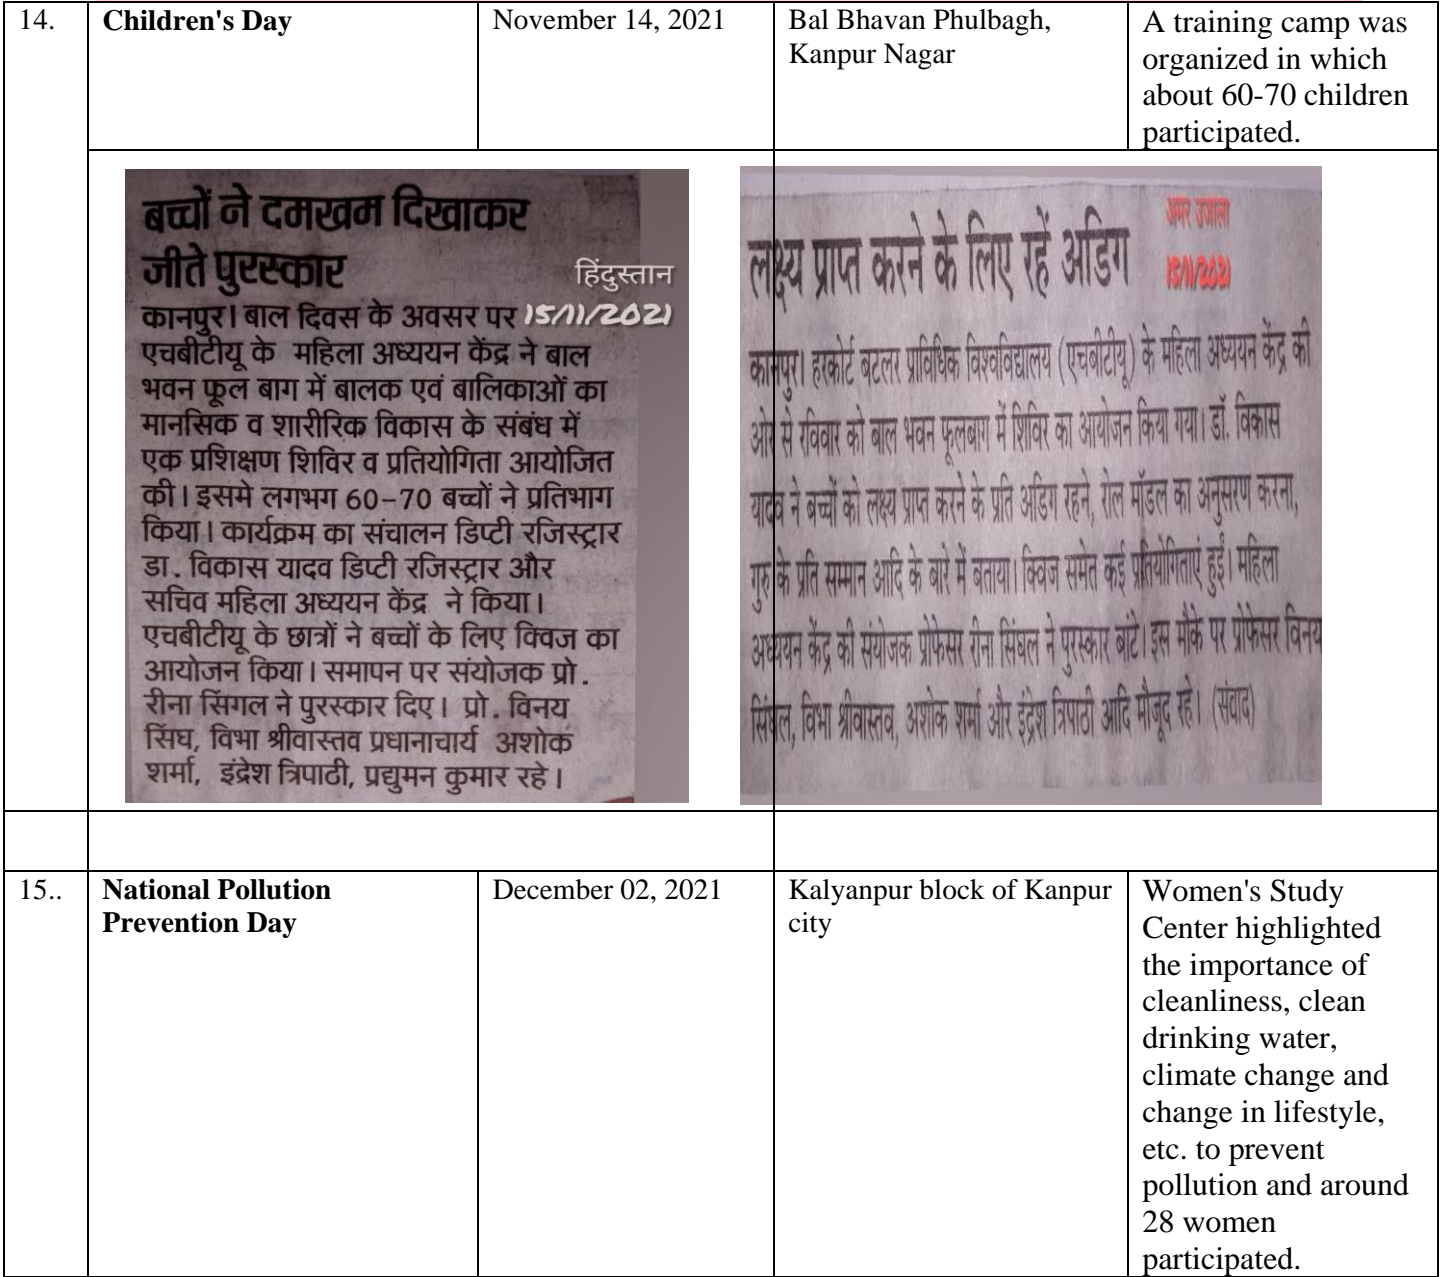 14.
Children's Day
November 14, 2021
Bal Bhavan Phulbagh,
Kanpur Nagar
A training camp was
organized in which
about 60-70 children
participated.
बच्चों ने दमखम दिखाकर
जीते पुरस्कार
हिंदुस्तान
15/11/2021
कानपुर। बाल दिवस के अवसर पर
एचबीटीयू के महिला अध्ययन केंद्र ने बाल
भवन फूल बाग में बालक एवं बालिकाओं का
मानसिक व शारीरिक विकास के संबंध में
एक प्रशिक्षण शिविर व प्रतियोगिता आयोजित
की। इसमे लगभग 60-70 बच्चों ने प्रतिभाग
किया। कार्यक्रम का संचालन डिप्टी रजिस्ट्रार
डा. विकास यादव डिप्टी रजिस्ट्रार और
सचिव महिला अध्ययन केंद्र ने किया।
एचबीटीयू के छात्रों ने बच्चों के लिए क्विज का
आयोजन किया। समापन पर संयोजक प्रो.
रीना सिंगल ने पुरस्कार दिए। प्रो. विनय
सिंघ, विभा श्रीवास्तव प्रधानाचार्य अशोक
शर्मा, इंद्रेश त्रिपाठी, प्रद्युमन कुमार रहे।
लक्ष्य प्राप्त करने के लिए रहें अडिग
अमर उजाला
15/11/2021
कानपुर। हरकोर्ट बटलर प्राविधिक विश्वविद्यालय (एचबीटीयू) के महिला अध्ययन केंद्र की
ओर से रविवार को बाल भवन फूलबाग में शिविर का आयोजन किया गया। डॉ. विकास
यादव ने बच्चों को लक्ष्य प्राप्त करने के प्रति अडिग रहने, रोल मॉडल का अनुसरण करना,
गुरु के प्रति सम्मान आदि के बारे में बताया। क्विज समेत कई प्रतियोगिताएं हुईं। महिला
अध्ययन केंद्र की संयोजक प्रोफेसर रीना सिंघल ने पुरस्कार बांटे। इस मौके पर प्रोफेसर विनय
सिंघल, विभा श्रीवास्तव, अशोक शर्मा और इंद्रेश त्रिपाठी आदि मौजूद रहे। (संवाद)
15..
National Pollution
Prevention Day
December 02, 2021
Kalyanpur block of Kanpur
city
Women's Study
Center highlighted
the importance of
cleanliness, clean
drinking water,
climate change and
change in lifestyle,
etc. to prevent
pollution and around
28 women
participated.